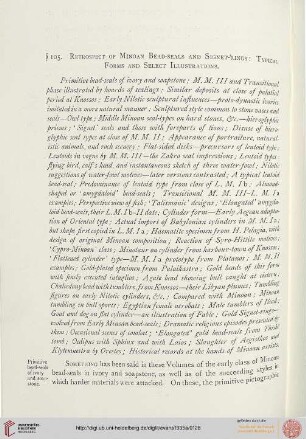 § 105. Retrospect of Minoan Bead-seals and Signet-rings: Typical
Forms and Select Illustrations.
Primitive bead-seals of ivory and soapstone; M. M. III and Transitional
phase illustrated by hoards of sealings; Similar deposits at close of palatial
period at Knossos; Early Nilotic sculptural influences—proto-dynastic ivories
imitated in a more natural manner; Sculptural style common to stone vases and
seals—Owl type; Middle Minoan seal-types on hard stones, &c.—hieroglyphic
prisms; 'Signet' seals and those with foreparts of lions; Dictaei of hiero-
glyphic seal types at close of M. M. II; Appearance of portraiture, natural-
istic animals, and rock scenes; Flat-sided disks—precursors of lentoid type;
Lentoids in vogue by M. M. III—the Zakro seal impressions; Lentoid types—
flying bird, calf's head, and instantaneous sketch of three water-fowl; Nilotic
suggestions of water-fowl motives—later versions contrasted; A typical lentoid
bead-seal; Predominance of lentoid type from close of L. M. I b; Almond-
shaped or 'amygdaloid' bead-seals; Transitional M. M. III–L. M. I a
examples; Perspective view of fish; 'Talismanic' designs; 'Elongated' amygda-
loid bead-seals, their L. M. I b–II date; Cylinder form—Early Aegean adapta-
tion of Oriental type; Actual import of Babylonian cylinders in M. M. I b;
but shape first copied in L. M. I a; Haematite specimen from H. Pelagia, with
design of original Minoan composition; Reaction of Syro-Hittite motives;
'Cypro-Minoan' class; Minotaur on cylinder from harbour-town of Knossos;
'Flattened cylinder' type—M. M. I a prototype from Platanos; M. M. II
examples; Gold-plated specimen from Palaikastro; Gold beads of this form
with finely executed intaglios; Agate bead showing bull caught at cistern;
Chalcedony bead with tumblers, from Knossos—their Libyan plumes; Tumbling
figures on early Nilotic cylinders, &c.; Compared with Minoan; Minoan
tumbling in bull sports; Egyptian female acrobats; Male tumblers of Thod;
Goat and dog on flat cylinder—an illustration of Fable; Gold Signet-rings—
evolved from Early Minoan bead-seals; Dramatic religious episodes presented by
them; Occasional scenes of combat; 'Elongated' gold bead-seals from Thisbê
hoard; Oedipus with Sphinx and with Laios; Slaughter of Aegisthos and
Klytemnestra by Orestes; Historical records at the hands of Minoan artists.
Primitive
bead-seals
of ivory
and soap-
stone.
Something has been said in these Volumes of the early class of Minoan
bead-seals in ivory and soapstone, as well as of the succeeding styles in
which harder materials were attacked. On these, the primitive pictographic
http://digi.ub.uni-heidelberg.de/diglit/evans1935a/0128